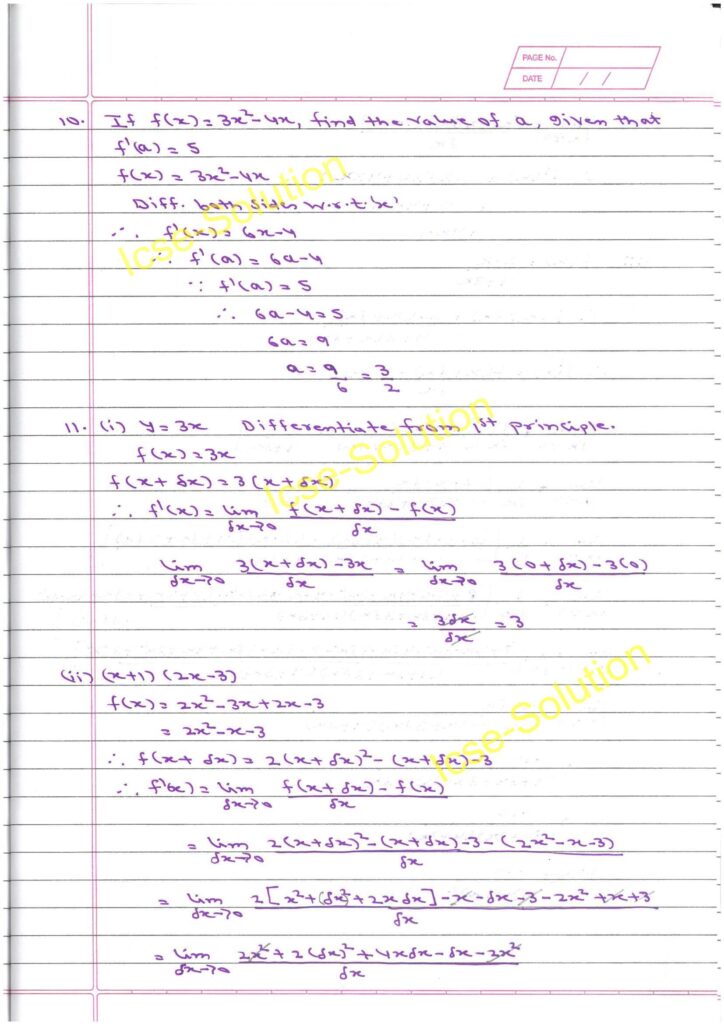 PAGE No.
DATE / /
10. If f(x) = 3x² - 4x, find the value of a, given that
f'(a) = 5
f(x) = 3x² - 4x
Diff. both sides w.r.t. 'x'
∴ f'(x) = 6x - 4
∴ f'(a) = 6a - 4
∵ f'(a) = 5
∴ 6a - 4 = 5
6a = 9
a = 9/6 = 3/2
11. (i) y = 3x Differentiate from 1st principle.
f(x) = 3x
f(x + δx) = 3(x + δx)
∴ f'(x) = lim δx→0 f(x + δx) - f(x) / δx
lim δx→0 3(x + δx) - 3x / δx = lim δx→0 3(0 + δx) - 3(0) / δx
= 3δx / δx = 3
(ii) (x+1) (2x-3)
f(x) = 2x² - 3x + 2x - 3
= 2x² - x - 3
∴ f(x + δx) = 2(x + δx)² - (x + δx) - 3
∴ f'(x) = lim δx→0 f(x + δx) - f(x) / δx
= lim δx→0 2(x + δx)² - (x + δx) - 3 - (2x² - x - 3) / δx
= lim δx→0 2[x² + (δx)² + 2x δx] - x - δx - 3 - 2x² + x + 3 / δx
= lim δx→0 2x² + 2(δx)² + 4xδx - δx - 2x² / δx
Icse-Solution
Icse-Solution
Icse-Solution